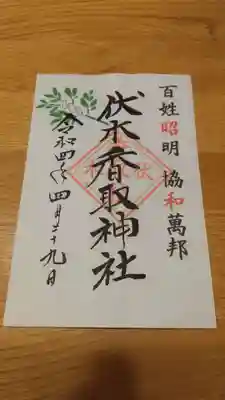 百姓昭明 協和萬邦
伏木香取神社
令和四年四月二十九日